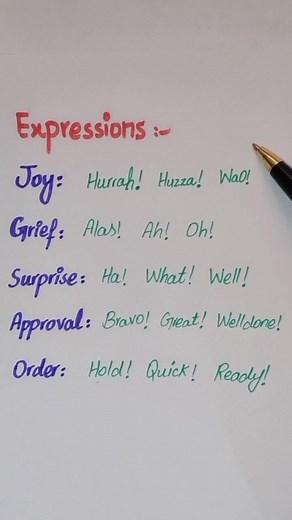 Expressions :-
Joy: Hurrah! Huzza! Wao!
Grief: Alas! Ah! Oh!
Surprise: Ha! What! Well!
Approval: Bravo! Great! Welldone!
Order: Hold! Quick! Ready!